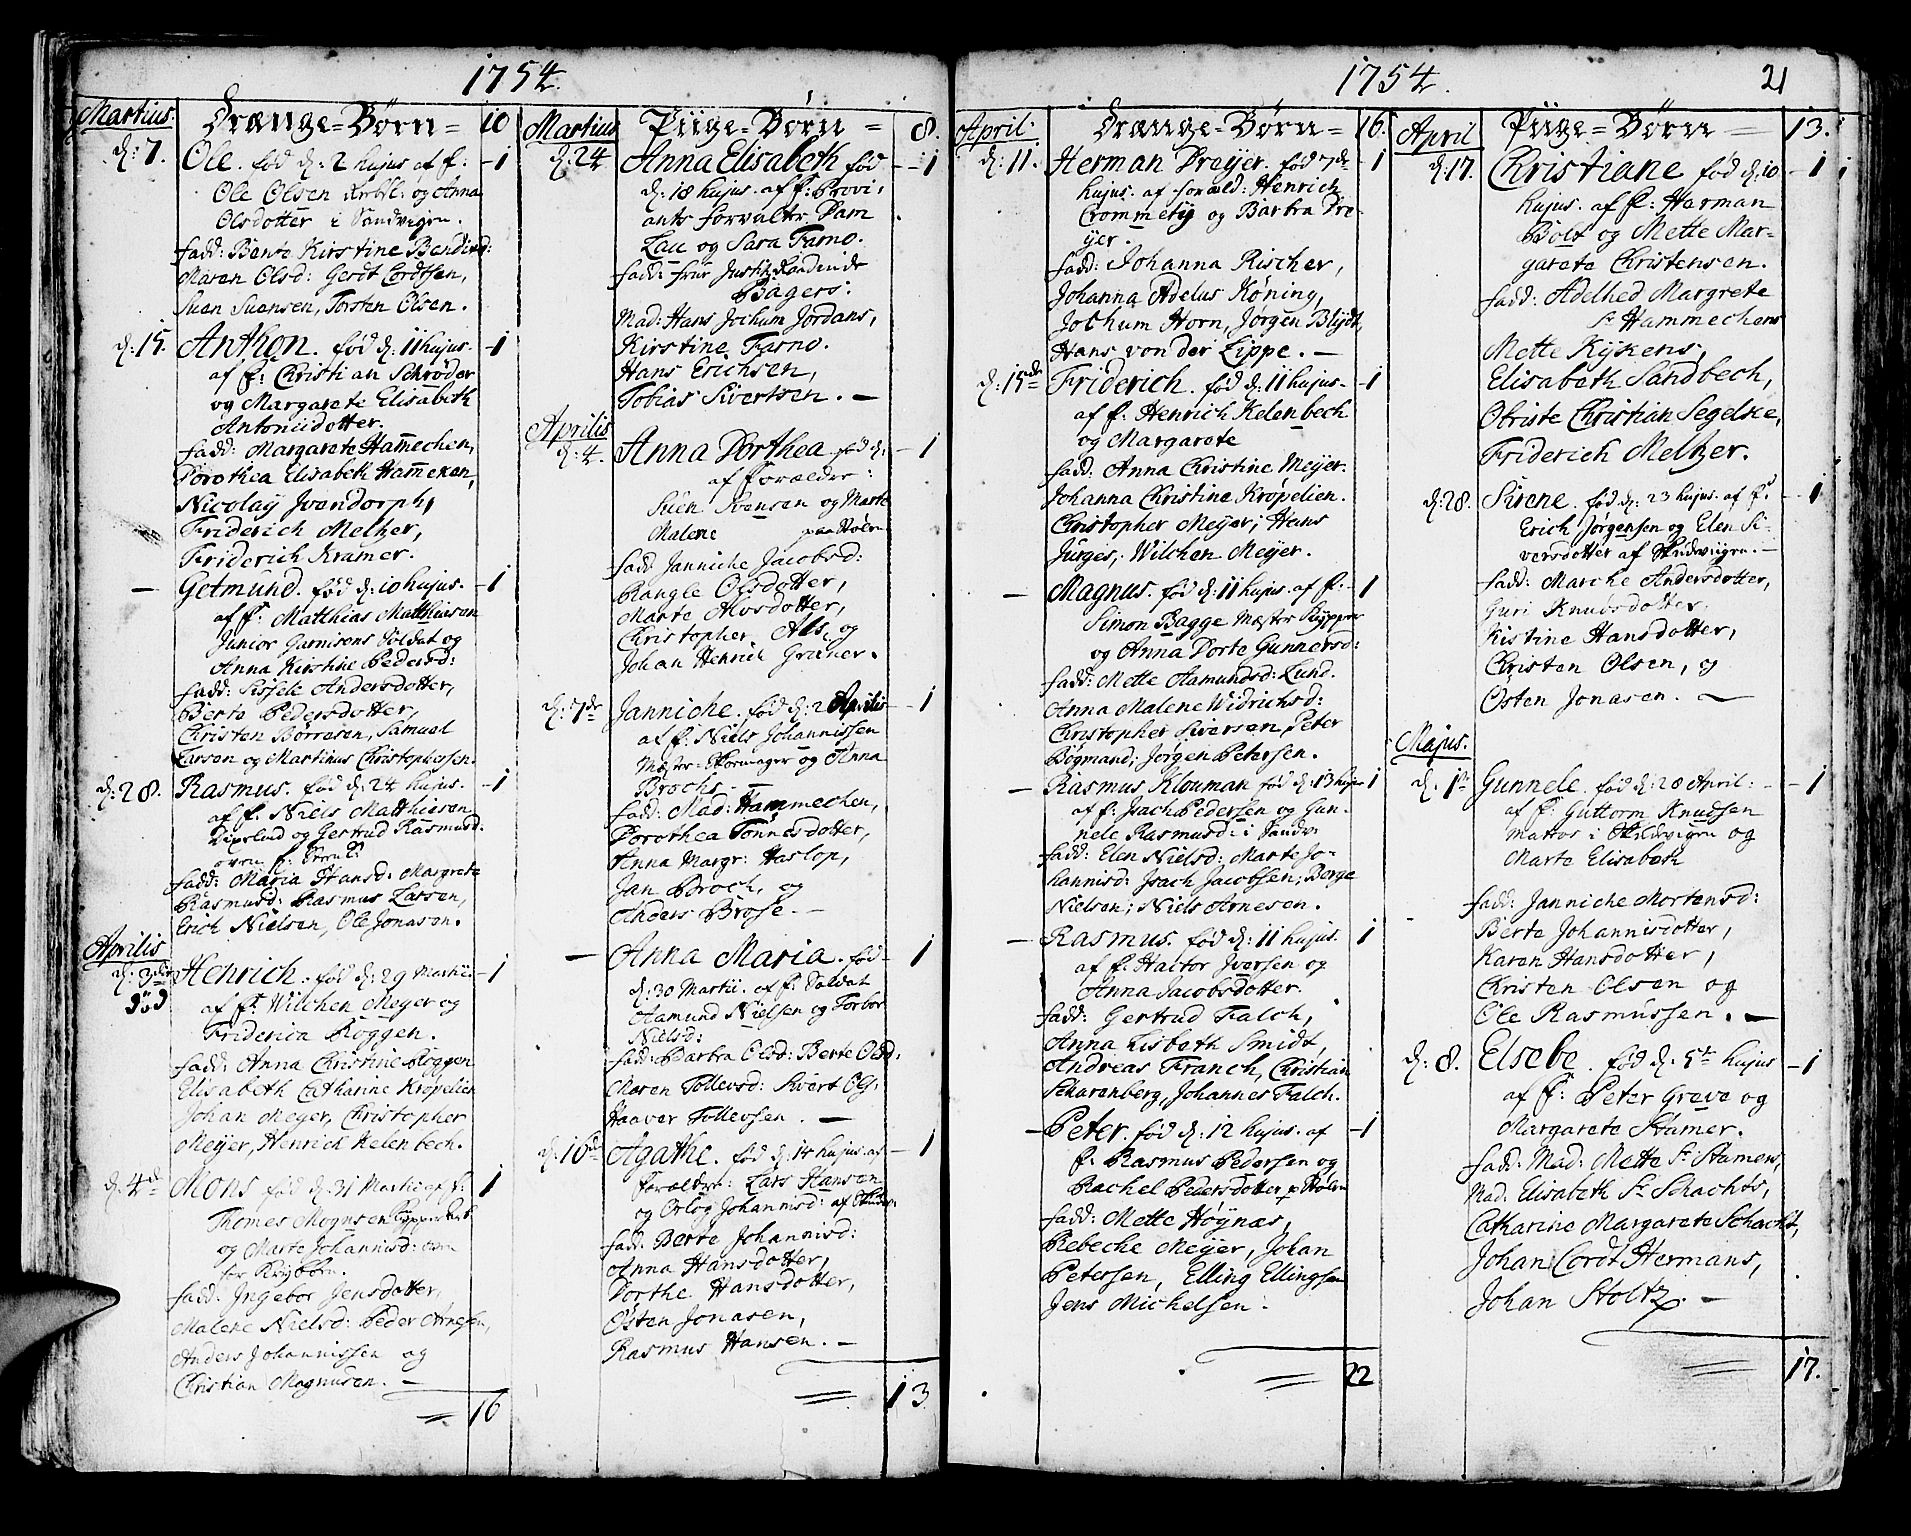 1754.
Martius. Drænge=Børn= 10
d: 7. Ole. fød d: 2 hujus af f. -1
Ole Olsen Arbsl: og Anna
Olsdotter i Sandvigen.
fadd: Bente Kirstine Bendixd:
Maren Olsd: Gerdt Cordtsen,
Suen Suensen, Torsten Olsen.
d: 15. Anthon. fød d: 11 hujus. -1
af f: Christian Schrøder
og Margarete Elisabeth
Antonidotter.
fadd: Margarete Hammechen,
Dorothea Elisabeth Hammeken,
Nicolaÿ Jvendorph,
Friderich Meltzer,
Friderich Kramer.
— Getmund. fød d: 10 hujus. -1
af f: Matthias Matthiesen
Junior Garnisons Soldat og
Anna Kirstine Pedersd:
fadd: Sissele Andersdotter,
Berte Pedersdotter,
Christen Børresen, Samuel
Larsen og Martinus Christophersen.
d: 28. Rasmus. fød d: 24 hujus. -1
af f: Niels Matthiesen
og Gertrud Rasmusd:
fadd: Maria Hansd: Margrete
Rasmusd: Rasmus Larsen,
Erich Nielsen, Ole Jonasen.
Aprilis
d: 3die Henrich. fød d: 29 Martii. -1
død af f: Wilchen Meyer og
Friderica Roggen.
fadd: Anna Christine Roggen
Elisabeth Catharine Kropelien
Johan Meyer, Christopher
Meÿer, Henrich Kelenbech.
d: 4de Mons fød d: 31 Martii af f. 1
Thomes Mognsen
og Marte Johannisd:
fadd: Jngebor Jensdotter,
Malene Nielsd: Peder Arnesen,
Anders Johannissen og
Christian Magnusen. —
= 16
Martius Piige=Børn = 8.
d: 24 Anna Elisabeth fød -1
d: 18 hujus. af f: Provi,
ants forvaltr Dam
Lau og Sara Farno.
fadd: frue Justitz Raadinde
Bagers:
Mad: Hans Jochum Jordans,
Kirstine Farno.
Hans Erichsen,
Tobias Sivertsen. —
Aprilis
d: 4. Anna Dorthea fød d: -1
af Forældre:
Suen Svensen og Marte
Malene paa Holen
fadd. Janniche Jacobsd:
Rangle Olsdotter,
Marte Alvsdotter,
Christopher Als og
Johan Henrich Grüner.
d: 7de Janniche. fød d: 2 Aprilis -1
af f: Niels Johannissen
Mester Skomager og Anna
Brochs —
fadd: Mad: Hammechen,
Dorothea Tønnesdotter,
Anna Margr: Haslop,
Jan Broch, og
Anders Brose. —
— Anna Maria. fød- 1
d: 30 Martii. af f: Soldat
Aamund Nielsen og Torbor
Nielsd:
fadd: Barbra Olsd: Berte Olsd:
Maren Tollevsd: Sivert Ols:
Haaver Tollevsen. —
d: 16de Agathe. fød d: 14 hujus. af -1
forældre: Lars Hansen
og Orlog Johannisd: af
fadd: Berte Johannisd:
Anna Hansdotter,
Dorthe Hansdotter,
Østen Jonasen,
Rasmus Hansen. —
= 13
1754. 21
April: Drænge=Børn= 16.
d: 11. Herman Dreÿer. fød 7de -1
hujus. af foræld: Henrich
Crommetÿ og Barbra Dre-
ÿer.
fadd: Johanna Rischer,
Johanna Adelus Køning,
Jochum Horn, Jørgen Blÿdt,
Hans von der Lippe. —
d: 15de Friderich. fød d: 11 hujus. -1
af f: Henrich Kelenbech
og Margarete
fadd: Anna Christine Meÿer.
Johanna Christine Kropelien.
Christopher Meÿer; Hans
Jürges, Wilchen Meÿer.
— Magnus. fød d: 11 hujus. af f: -1
Simon Bagge Mester Kÿpper
og Anna Dorte Gunnersd:
fadd: Mette Aamundsd: Lund.
Anna Malene Widrichsd:
Christopher Siversen, Peter
Bøgmand; Jørgen Petersen.
— Rasmus Klouman fød d: 13 hujus 1
af f: Jsach Pedersen og Gun-
nele Rasmusd: i Sandv
fadd: Elen Nielsd: Marte Jo-
hannisd: Jsach Jacobsen; Berge
Nielsen; Niels Arnesen.
— Rasmus. fød d: 11 hujus. 1
af f: Haltor Jversen og
Anna Jacobsdotter.
fadd: Gertrud Falch,
Anna Lisbeth Smidt,
Andreas Franch, Christian
Scharenberg, Johannes Falch.
— Peter. fød d: 12 hujus. af -1
f. Rasmus Pedersen og
Rachel Pedersdotter p Holen
fadd: Mette Høÿnæs,
Rebeche Meÿer, Johan
Petersen, Elling Ellingsen
Jens Michelsen.
= 22
April Piige=Børn — 13.
d: 17. Christiane fød d: 10 -1
hujus. af f: Herman
Bolt og Mette Mar-
garete Christensen.
fadd: Adelhed Margrete
Sr Hammechens
Mette Kÿkens,
Elisabeth Sandbech,
Obriste Christian Segelcke,
Friderich Meltzer.
d: 28. Sirene. fød d: 23 hujus. af f: -1
Erich Jørgensen og Elen Si-
versdotter af Skudevigen. —
fadd: Marche Andersdotter,
Guri Knudsdotter.
Kistine Hansdotter,
Christen Olsen, og
Østen Jonasen. —
Majus.
d: 1st Gunnele. fød d: 28 April: -1
af f: Guttorm Knudsen
Mattos i Skudevigen og
Marte Elisabeth
fadd: Janniche Mortensd:
Berte Johannisdotter,
Karen Hansdotter,
Christen Olsen og
Ole Rasmussen. —
d: 8. Elsebe. fød d: 5te hujus -1
af f: Peter Greve og
Margarete Stamer.
fadd: Mad: Mette Sr Stamers,
Mad: Elisabeth Sr Schachts,
Catharine Margarete Schacht,
Johan Cordt Hermans,
Johan Stoltz. —
= 17.